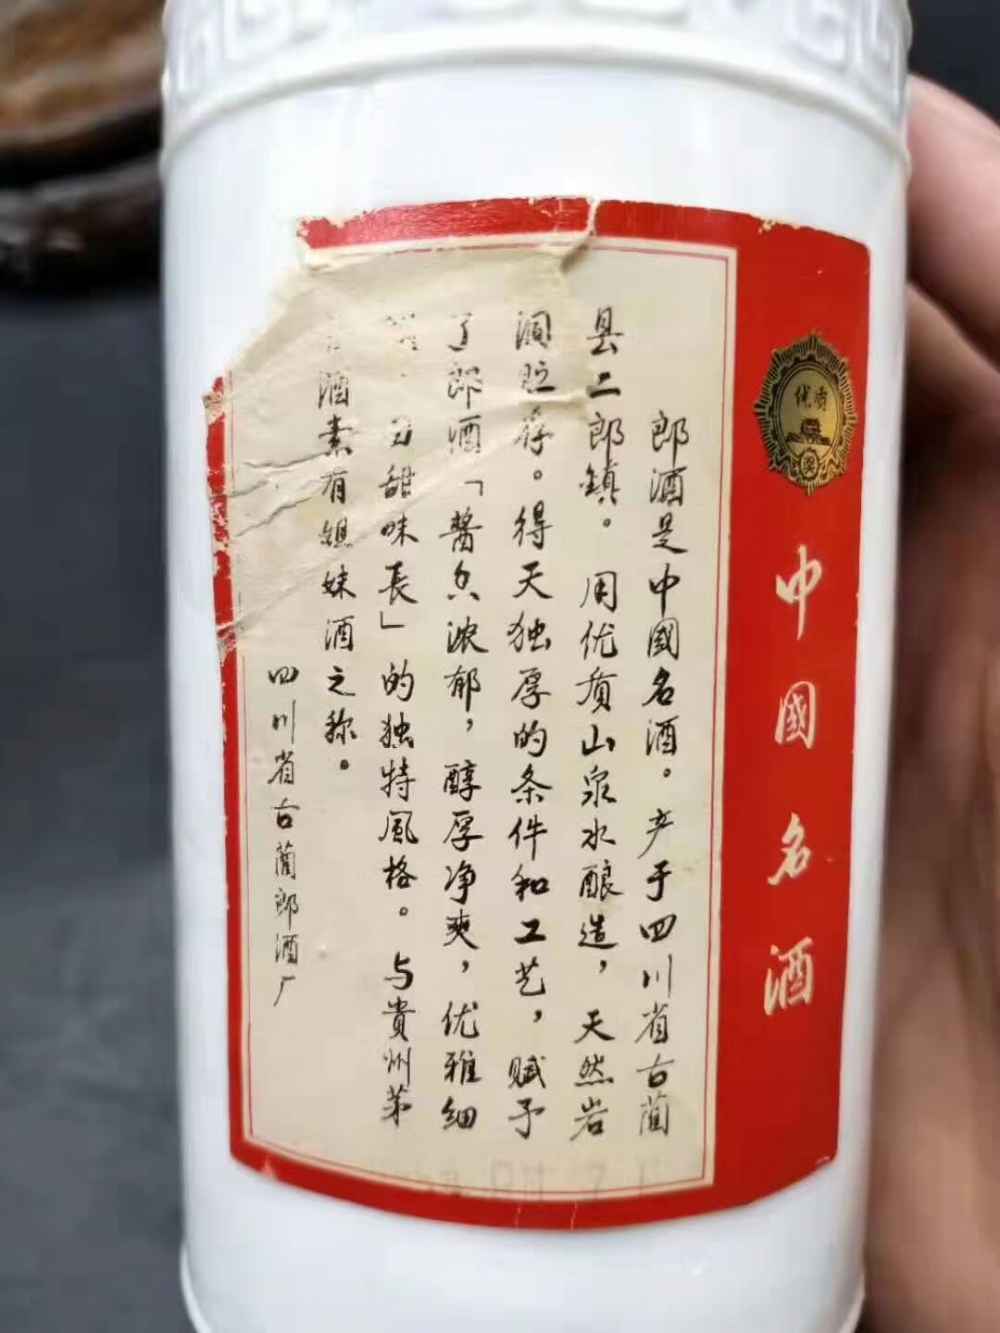 优质
奖
中國名酒
郎酒是中國名酒。产于四川省古蔺
县二郎鎮。用优质山泉水酿造，天然岩
洞贮存。得天独厚的条件和工艺，赋予
了郎酒「醬香浓郁，醇厚净爽，优雅细
甜味長」的独特風格。与貴州茅
酒素有姐妹酒之称。
四川省古蔺郎酒厂